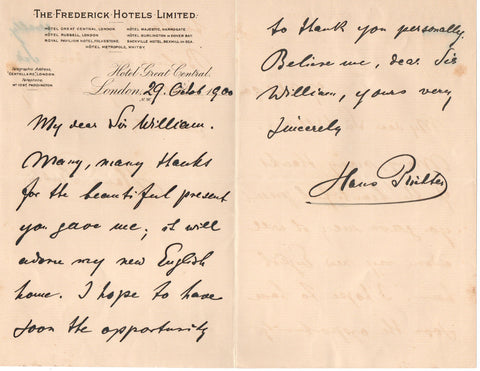 THE FREDERICK HOTELS LIMITED.
HÔTEL GREAT CENTRAL, LONDON
HÔTEL RUSSELL, LONDON
ROYAL PAVILION HÔTEL, FOLKESTONE
HÔTEL MAJESTIC, HARROGATE
HÔTEL BURLINGTON, DOVER
SACKVILLE HÔTEL, BEXHILL ON SEA
HÔTEL METROPOLE, WHITBY
Telegraphic Address,
CENTELLARE, LONDON.
Telephone
PADDINGTON
Hotel Great Central,
London, 29. Octob 1900
N.W.
My dear Sir William.
Many, many thanks
for the beautiful present
you gave me; it will
adorn my new English
home. I hope to have
soon the opportunity
to thank you personally.
Believe me, dear Sir
William, yours very
sincerely
Hans Richter